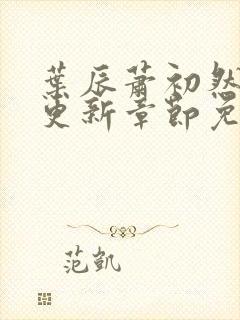 葉辰蕭初然
更新章節免
范凱